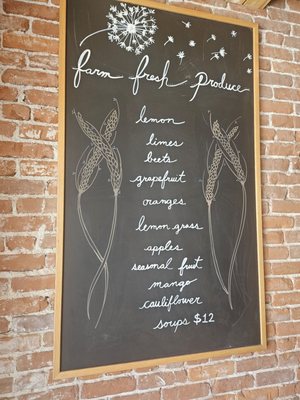 farm fresh produce
lemon
limes
beets
grapefruit
oranges
lemon grass
apples
seasonal fruit
mango
cauliflower
soups $12